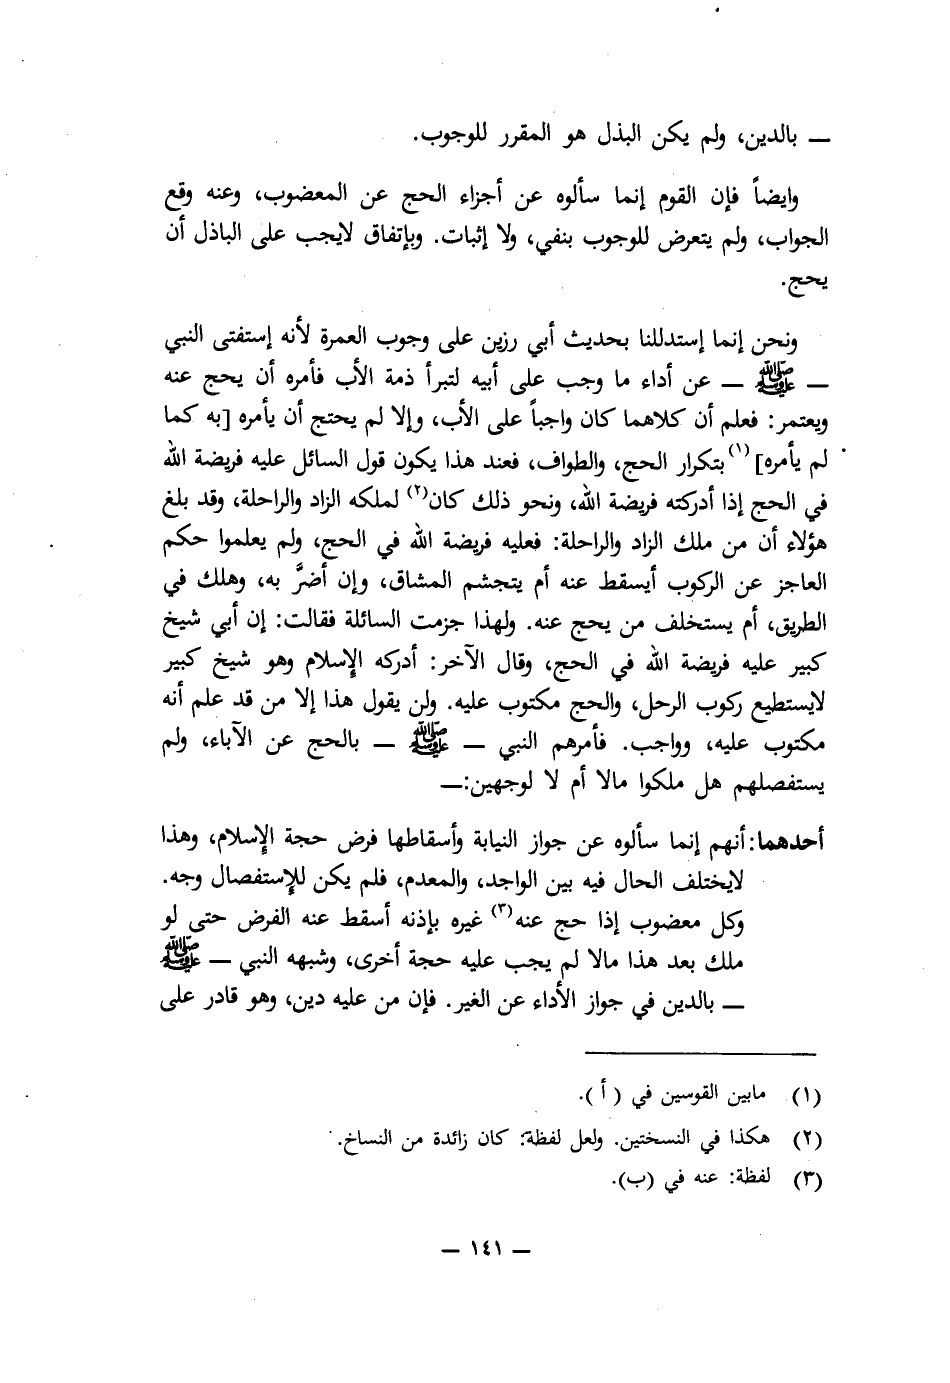 ـ بالدين، ولم يكن البذل هو المقرر للوجوب.
وايضاً فإن القوم إنما سألوه عن أجزاء الحج عن المعضوب، وعنه وقع
الجواب، ولم يتعرض للوجوب بنفي، ولا إثبات. وبإتفاق لايجب على الباذل أن
يحج.
ونحن إنما إستدللنا بحديث أبي رزين على وجوب العمرة لأنه إستفتى النبي
ـ ﷺ ـ عن أداء ما وجب على أبيه لتبرأ ذمة الأب فأمره أن يحج عنه
ويعتمر: فعلم أن كلاهما كان واجباً على الأب، وإلا لم يحتج أن يأمره [به كما
لم يأمره](١) بتكرار الحج، والطواف، فعند هذا يكون قول السائل عليه فريضة الله
في الحج إذا أدركته فريضة الله، ونحو ذلك كان(٢) لملكه الزاد والراحلة، وقد بلغ
هؤلاء أن من ملك الزاد والراحلة: فعليه فريضة الله في الحج، ولم يعلموا حكم
العاجز عن الركوب أيسقط عنه أم يتجشم المشاق، وإن أضرَّ به، وهلك في
الطريق، أم يستخلف من يحج عنه. ولهذا جزمت السائلة فقالت: إن أبي شيخ
كبير عليه فريضة الله في الحج، وقال الآخر: أدركه الإسلام وهو شيخ كبير
لايستطيع ركوب الرحل، والحج مكتوب عليه. ولن يقول هذا إلا من قد علم أنه
مكتوب عليه، وواجب. فأمرهم النبي ـ ﷺ ـ بالحج عن الآباء، ولم
يستفصلهم هل ملكوا مالا أم لا لوجهين:ـ
أحدهما: أنهم إنما سألوه عن جواز النيابة وأسقاطها فرض حجة الإسلام، وهذا
لايختلف الحال فيه بين الواجد، والمعدم، فلم يكن للإستفصال وجه.
وكل معضوب إذا حج عنه(٣) غيره بإذنه أسقط عنه الفرض حتى لو
ملك بعد هذا مالا لم يجب عليه حجة أخرى، وشبهه النبي ـ ﷺ
ـ بالدين في جواز الأداء عن الغير. فإن من عليه دين، وهو قادر على
(١) مابين القوسين في ( أ ).
(٢) هكذا في النسختين. ولعل لفظة: كان زائدة من النساخ.
(٣) لفظة: عنه في (ب).
ـ ١٤١ ـ